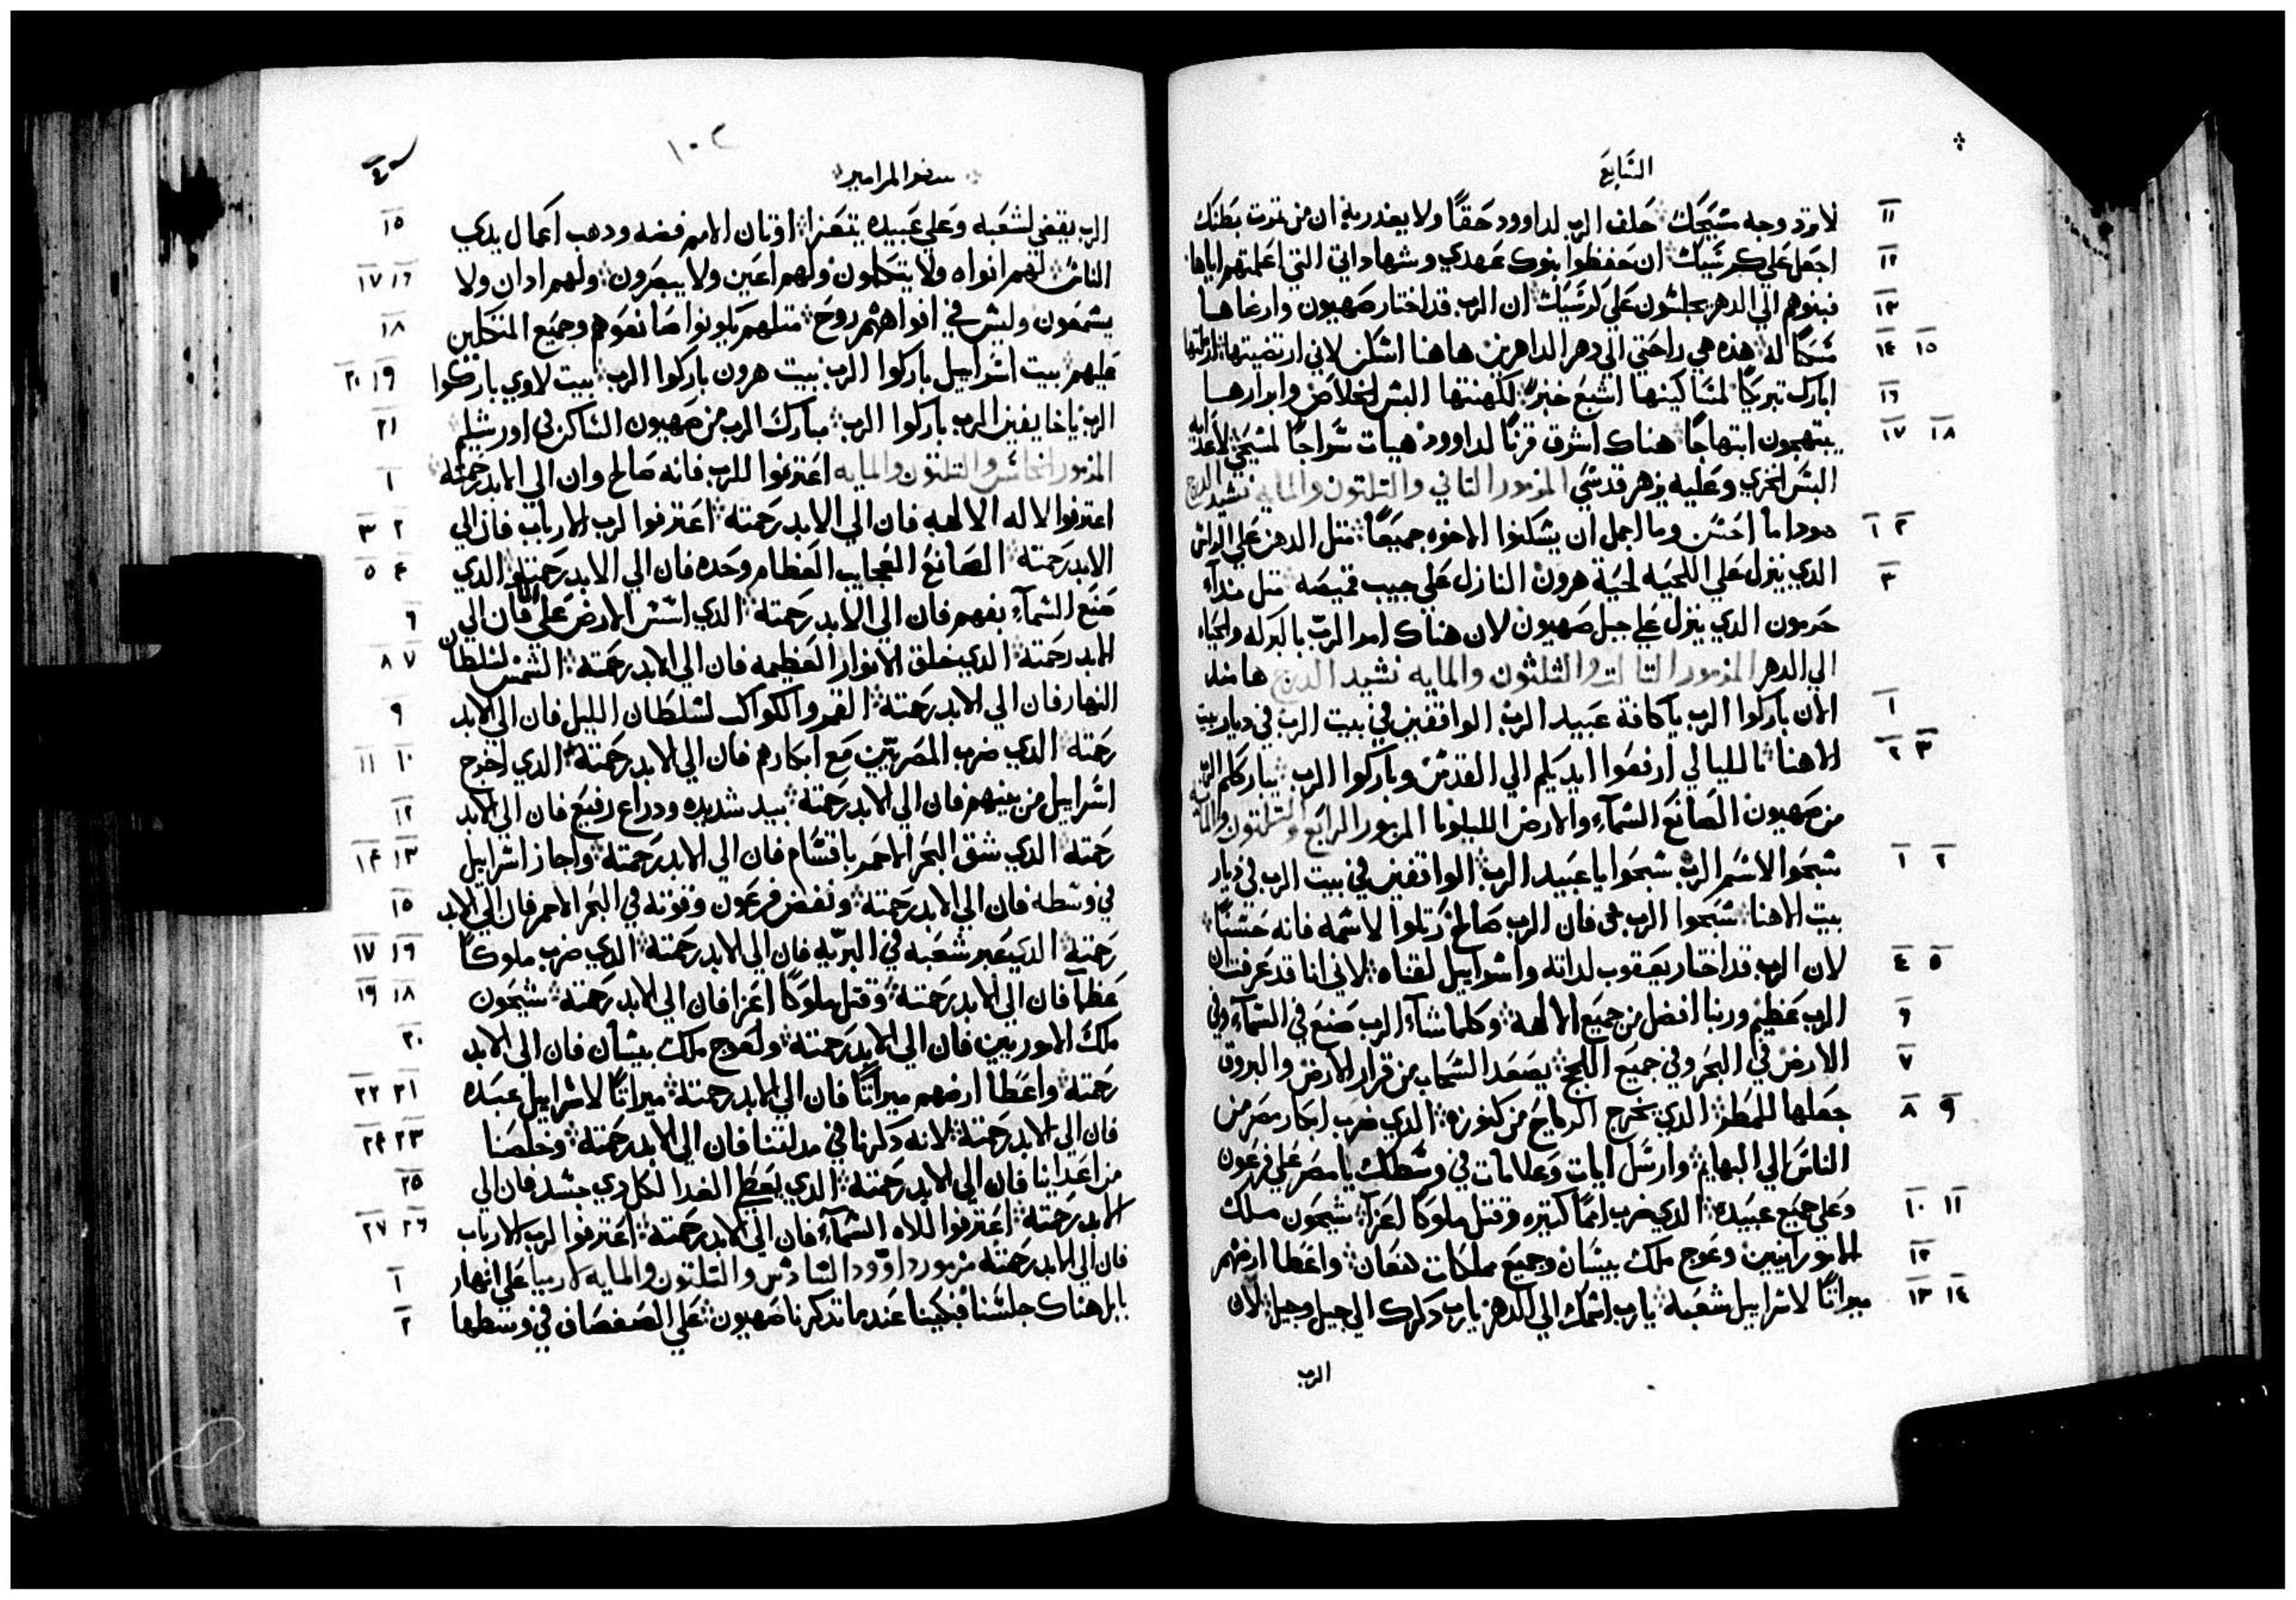 السابع
لا ترد وجه مسيحك حلف الرب لداوود حقًا ولا يغدر به ان من تمرت بطنك
١١
اجعل علي كرسيك ان حفظوا بنوك عهدي وشهاداتي التي اعلمتهم اياها
١٢
فبنوهم الي الدهر يجلسون علي كرسيك ان الرب قد اختار صهيون وارعاها
١٣
مسكنًا له هذه هي راحتي الي دهر الداهرين هاهنا اسكن لاني ارتضيتها
١٤ ١٥
ابارك تبريكًا لمساكينها اشبع خبز لكهنتها البس الخلاص وابرارها
١٦
يبتهجون ابتهاجًا هناك اشرق قرنًا لداوود هيات سراجًا لمسيحي لاعدايه
١٧ ١٨
البس الخزي وعليه يزهر قدسي المزمور التاني والتلتون والمايه نشيد الدرج
هوداما احسن وما اجمل ان يسكنوا الاخوه جميعًا متل الدهن علي الراس
١ ٢
الدي ينزل علي اللحيه لحية هرون النازل علي جيب قميصه متل نداء
٣
حرمون الدي ينزل علي جبل صهيون لان هناك امر الرب بالبركه والحياه
الي الدهر المزمور التالت والتلتون والمايه نشيد الدرج هامند
الان باركوا الرب يا كافة عبيد الرب الواقفين في بيت الرب في ديار بيت
١
الاهنا بالليالي ارفعوا ايديكم الي القدس وباركوا الرب يبارككم الرب
٢ ٣
من صهيون الصانع السماء والارض الليلويا المزمور الرابع والتلتون والمايه
سبحوا لاسم الرب سبحوا يا عبيد الرب الواقفين في بيت الرب في ديار
١ ٢
بيت الاهنا سبحوا الرب فان الرب صالح رتلوا لاسمه فانه حسنًا
لان الرب قد اختار يعقوب لداته واسراييل لقناه لاني انا قد عرفت ان
٤ ٥
الرب عظيم وربنا افضل من جميع الالهه وكلما شاء الرب صنع في السماء وفي
٦
الارض في البحر وفي جميع اللجج يصعد السحاب من قرار الارض والبروق
٧
جعلها للمطر الدي يخرج الرياح من كنوزه الدي ضرب ابكار مصر من
٨ ٩
الناس الي البهايم وارسل ايات وعلامات في وسطك يا مصر علي فرعون
وعلي جميع عبيده الدي ضرب اممًا كتيره وقتل ملوكًا اعزاء سيحون ملك
١٠ ١١
الامورانيين وعوج ملك بيسان وجميع مملكات كنعان واعطا ارضهم
١٢
ميراتًا لاسراييل شعبه يا رب اسمك الي الدهر يا رب دكرك الي جيل وجيل لان
١٣ ١٤
الرب
١٠٢
سفر المزامير
الرب يقضي لشعبه وعلي عبيده يتعزا اوتان الامم فضه ودهب اعمال يدي
١٥
الناس لهم افواه ولا يتكلمون ولهم اعين ولا يبصرون ولهم ادان ولا
١٦ ١٧
يسمعون وليس في افواههم روح متلهم يكونوا صانعوهم وجميع المتكلين
١٨
عليهم بيت اسراييل باركوا الرب بيت هرون باركوا الرب بيت لاوي باركوا
١٩ ٢٠
الرب يا خايفين الرب باركوا الرب مبارك الرب من صهيون الساكن في اورشليم
٢١
المزمور الخامس والتلتون والمايه اعترفوا للرب فانه صالح وان الي الابد رحمته
١
اعترفوا لاله الالهه فان الي الابد رحمته اعترفوا لرب الارباب فان الي
٢ ٣
الابد رحمته الصانع العجايب العظام وحده فان الي الابد رحمته الدي
٤ ٥
صنع السماء بفهم فان الي الابد رحمته الدي اسس الارض علي الماء فان الي
٦
الابد رحمته الدي خلق الانوار العظيمه فان الي الابد رحمته الشمس لسلطان
٧ ٨
النهار فان الي الابد رحمته القمر والكواكب لسلطان الليل فان الي الابد
٩
رحمته الدي ضرب المصريين مع ابكارهم فان الي الابد رحمته الدي اخرج
١٠ ١١
اسراييل من بينهم فان الي الابد رحمته بيد شديده ودراع رفيع فان الي الابد
١٢
رحمته الدي شق البحر الاحمر باقسام فان الي الابد رحمته واجاز اسراييل
١٣ ١٤
في وسطه فان الي الابد رحمته ونفض فرعون وقوته في البحر الاحمر فان الي الابد
١٥
رحمته الدي عبر شعبه في البريه فان الي الابد رحمته الدي ضرب ملوكًا
١٦ ١٧
عظاء فان الي الابد رحمته وقتل ملوكًا اعزا فان الي الابد رحمته سيحون
١٨ ١٩
ملك الاموريين فان الي الابد رحمته ولعوج ملك بيسان فان الي الابد
٢٠
رحمته واعطا ارضهم ميراتًا فان الي الابد رحمته ميراتًا لاسراييل عبده
٢١ ٢٢
فان الي الابد رحمته لانه دكرنا في مدلتنا فان الي الابد رحمته وخلصنا
٢٣ ٢٤
من اعداينا فان الي الابد رحمته الدي يعطي الغدا لكل دي جسد فان الي
٢٥
الابد رحمته اعترفوا للاه السماء فان الي الابد رحمته اعترفوا لرب الارباب
٢٦ ٢٧
فان الي الابد رحمته مزمور داوود السادس والتلتون والمايه لارميا علي انهار
١
بابل هناك جلسنا فبكينا عندما تدكرنا صهيون علي الصفصاف في وسطها
٢